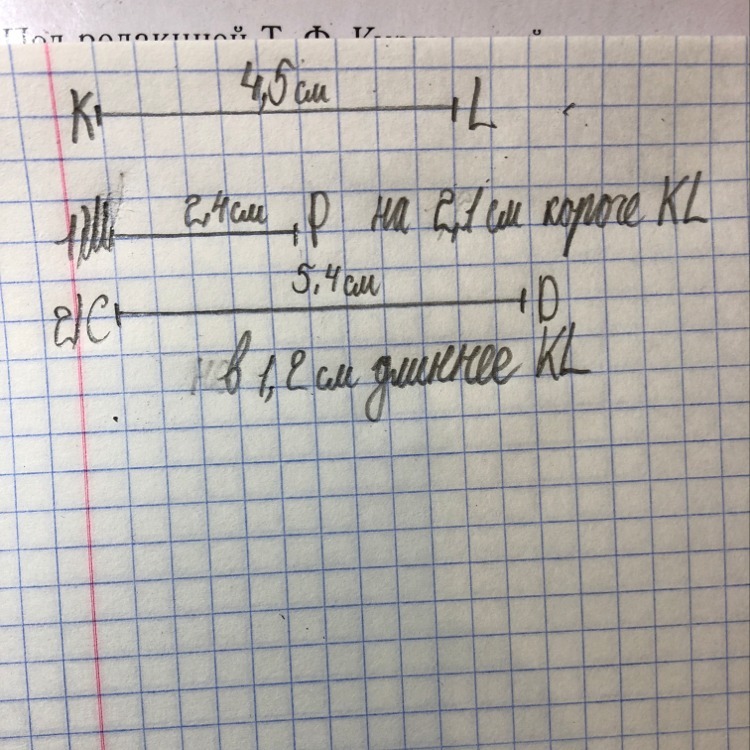 4,5 см
K L
2,4 см
1) M P на 2,1 см короче KL
5,4 см
2) C D
в 1,2 см длиннее KL